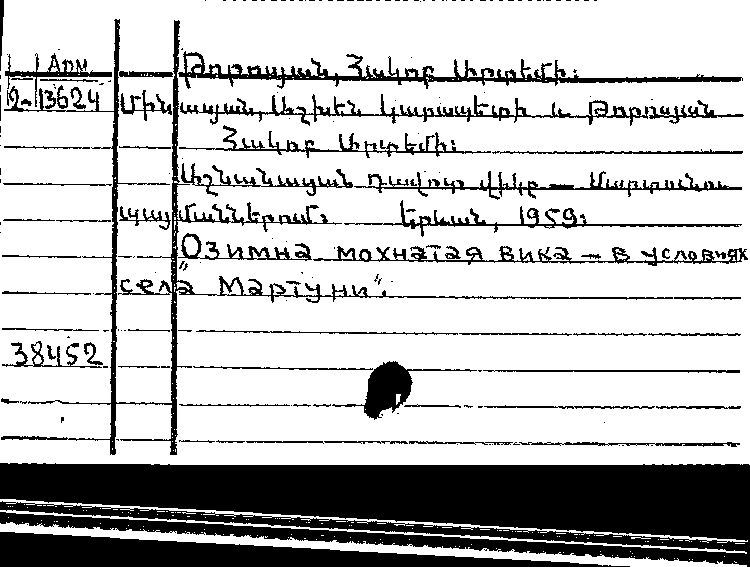 Арм Թորոսյան, Հակոբ Արտեմի։
2-13624 Մինասյան, Աշխեն Կարապետի և Թորոսյան
Հակոբ Արտեմի։
Աշնանացան թավոտ վիկը — Մարտունու
պայմաններում։ Երևան, 1959։
"Озимна мохнатая вика — в условиях
села Мартуни".
38452